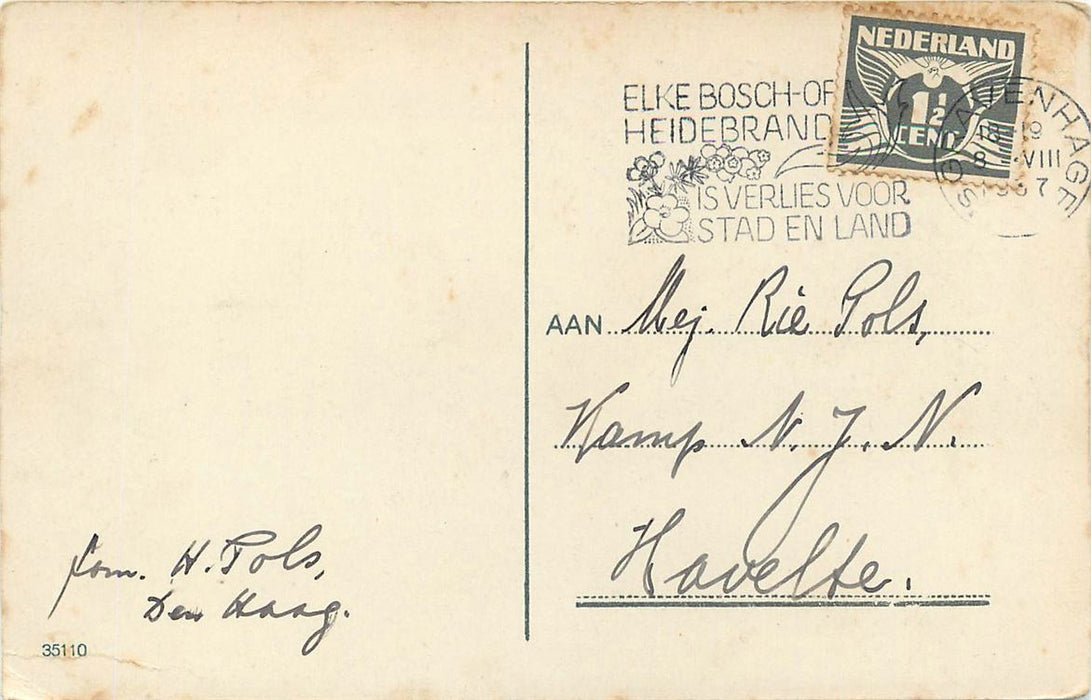 NEDERLAND
1½
CENT
ELKE BOSCH-OF
HEIDEBRAND
IS VERLIES VOOR
STAD EN LAND
'S GRAVENHAGE
18-19
8 VIII
1937
AAN Mej. Rie Pols,
Kamp N. J. N.
Havelte.
fam. H. Pols,
Den Haag.
35110